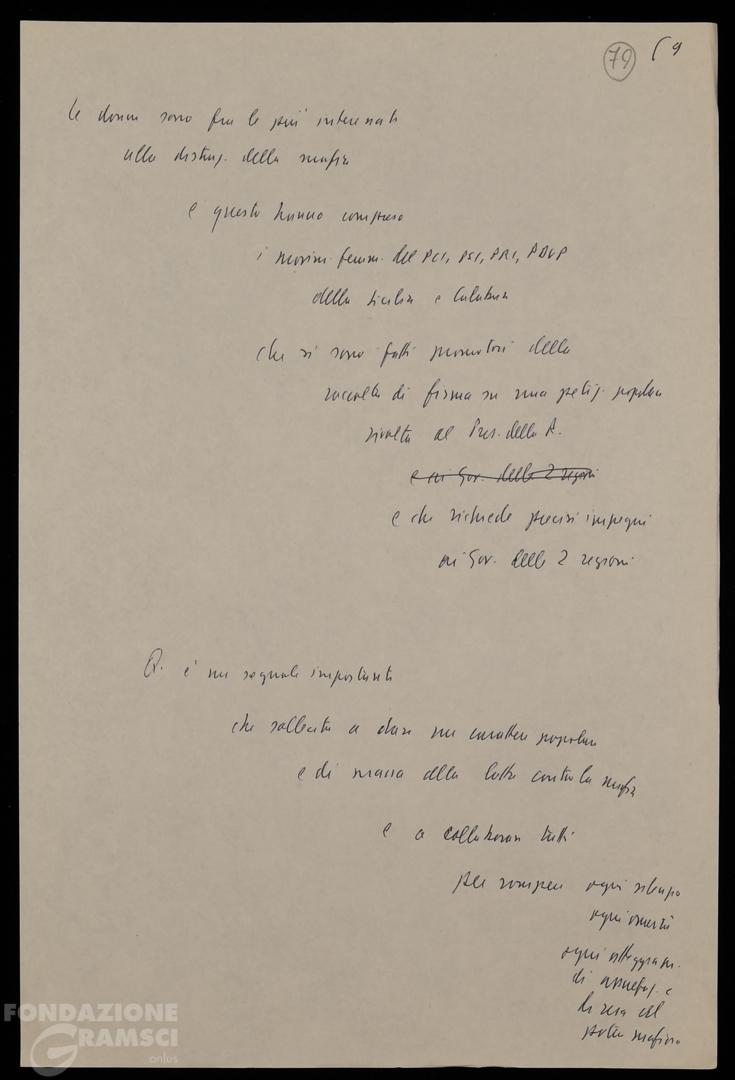 79 69
le donne sono fra le più interessate
alla distruz. della mafia
e questo hanno compreso
i movim. femm. del PCI, PSI, PRI, PDUP
della Sicilia e Calabria
che si sono fatti promotori della
raccolta di firme su una petiz. popolare
rivolta al Pres. della R.
e ai Gov. delle 2 regioni
e che richiede precisi impegni
ai Gov. delle 2 regioni
Q. è un segnale importante
che sollecita a dare un carattere popolare
e di massa alla lotta contro la mafia
e a collaborare tutti
per rompere ogni silenzio
ogni omertà
ogni atteggiam.
di assuefaz. e
di resa al
potere mafioso
FONDAZIONE
GRAMSCI
onlus